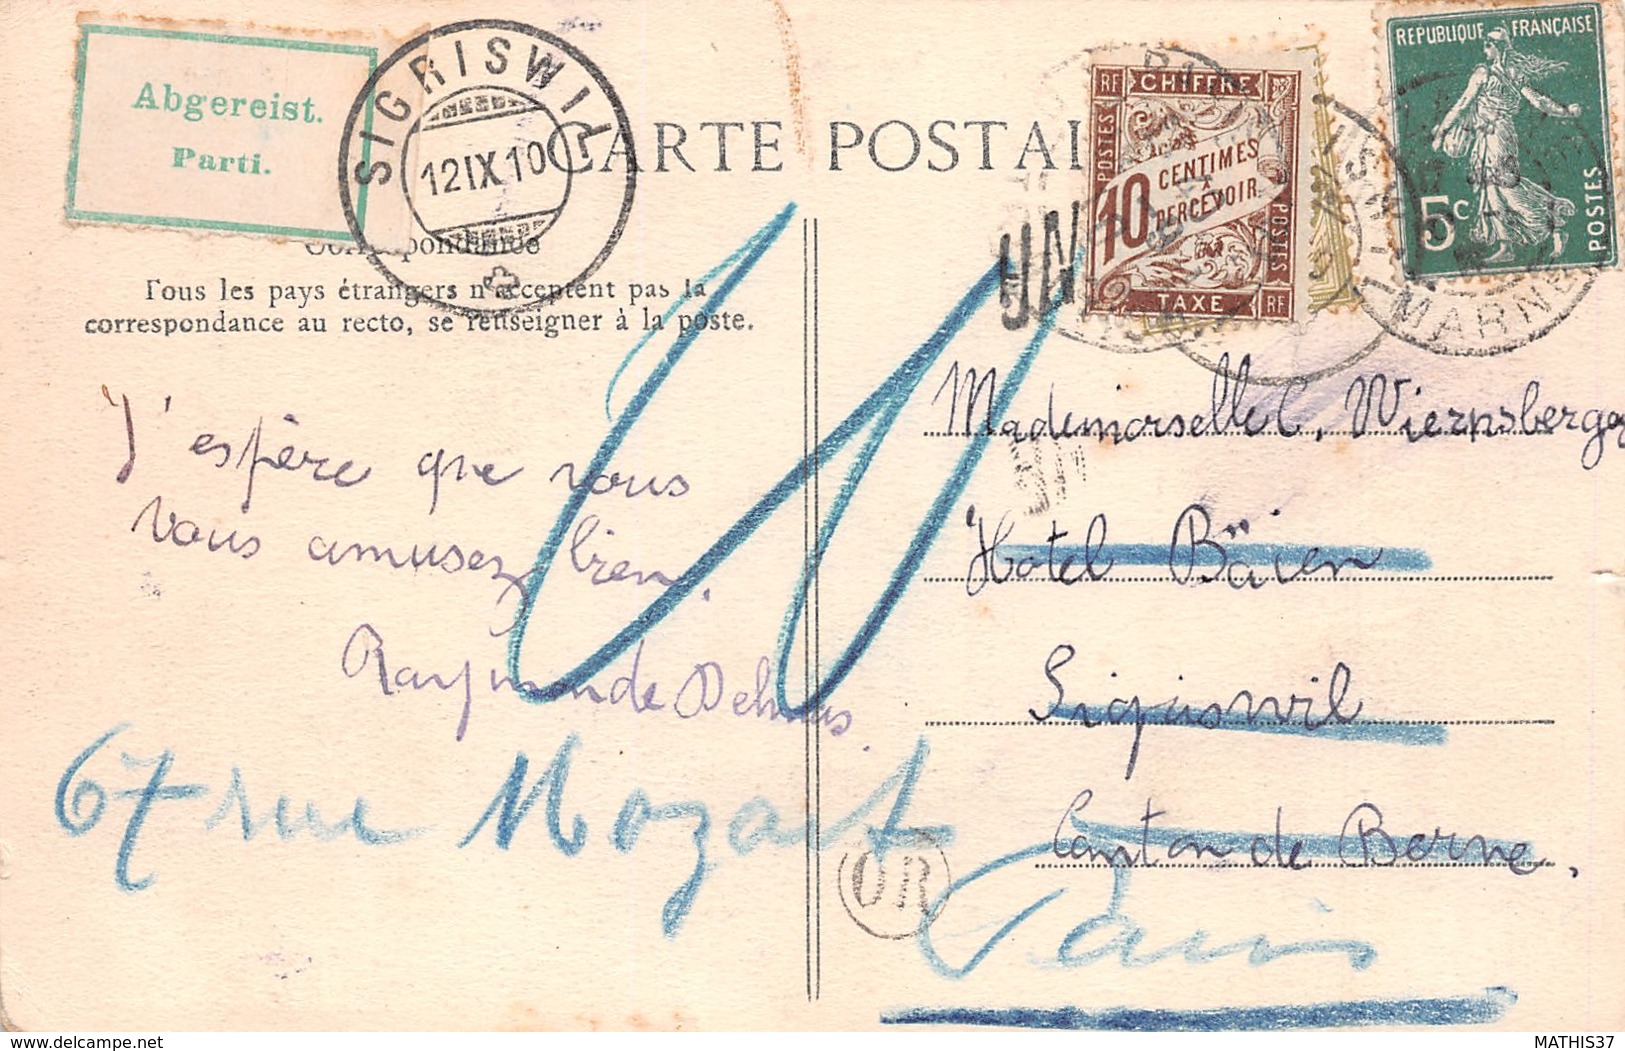 Abgereist.
Parti.
SIGRISWIL
12 IX 10
CARTE POSTAL
Correspondance
Tous les pays étrangers n'acceptent pas la
correspondance au recto, se renseigner à la poste.
RF CHIFFRE
POSTES
10 CENTIMES
À
PERCEVOIR
POSTES
TAXE RF
REPUBLIQUE FRANÇAISE
5c
POSTES
MARNE
10
J'espère que vous
vous amusez bien.
Raymonde Delmas.
Mademoiselle C. Wiernsberger
Hotel Bären
Sigriswil
Canton de Berne.
67 rue Mozart
Paris
OR
delcampe.net
MATHIS37